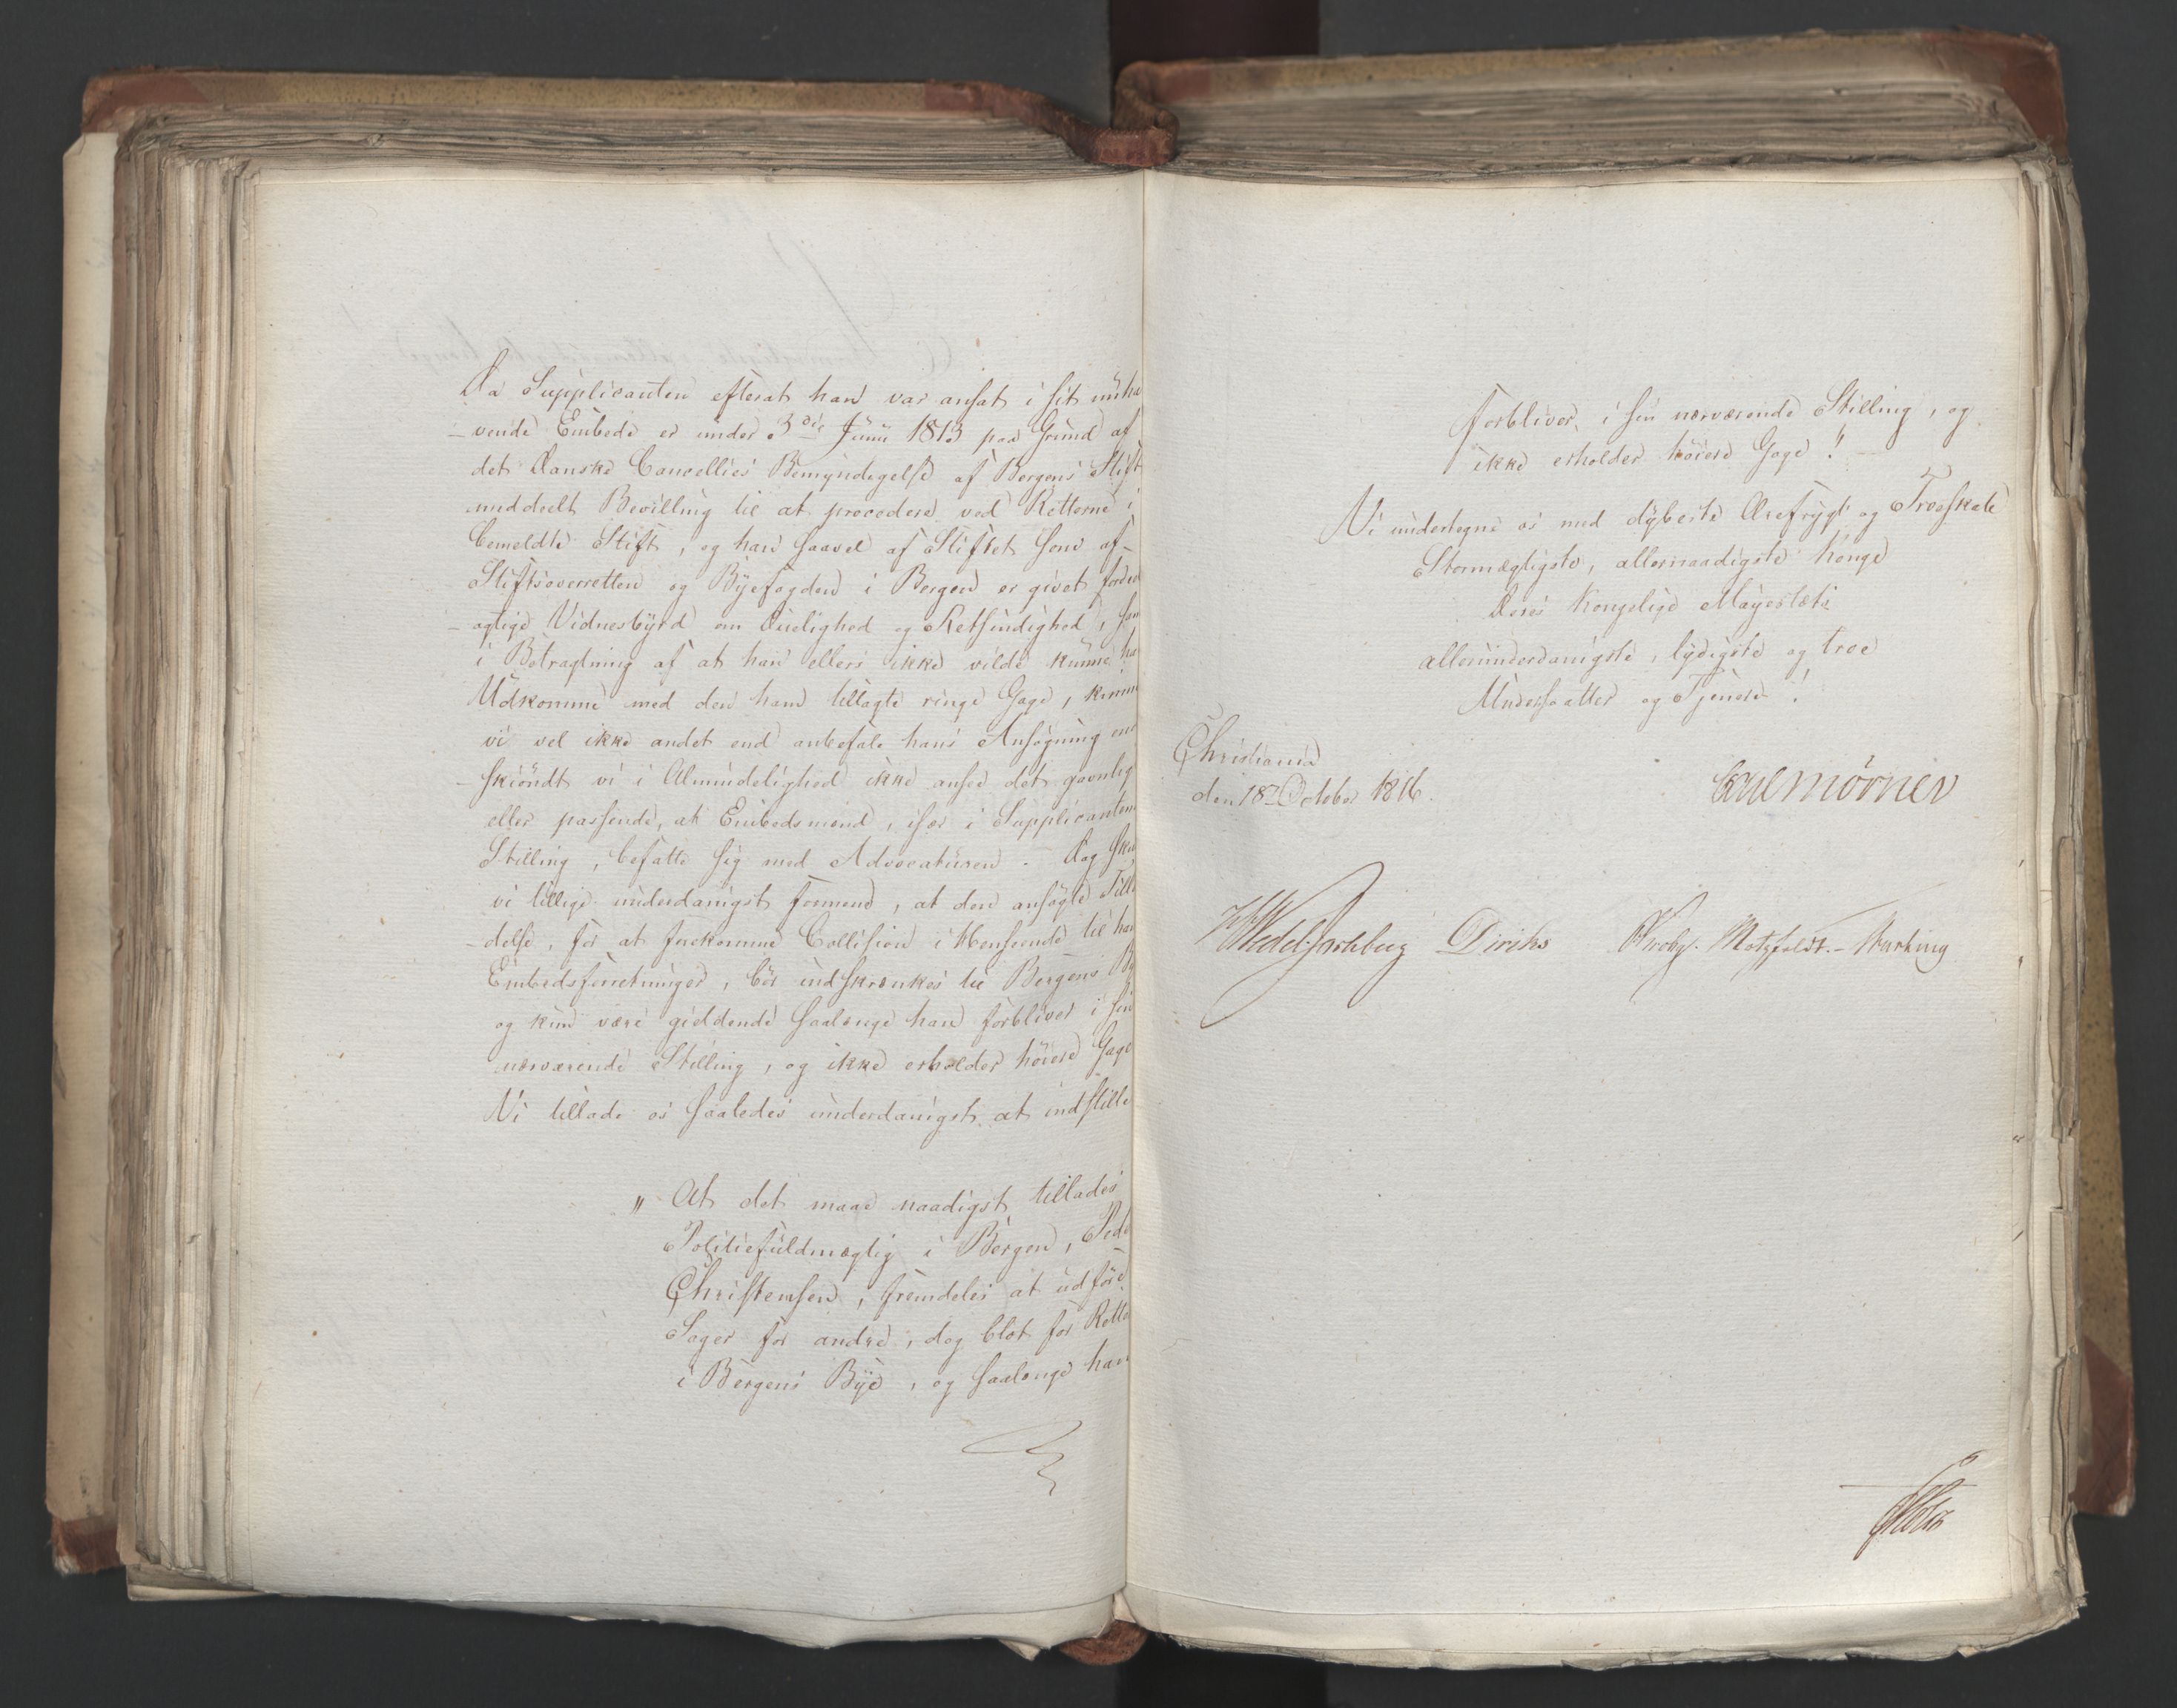 Da Supplicanten efterat han var ansat i sit nuha
-vende Embede er under 3die Junii 1813 paa Grund af
det Danske Cancellies Bemyndigelse af Bergens Stift
meddeelt Bevilling til at procedere ved Retterne i
bemeldte Stift, og han saavel af Stiftet som af
Stiftsoverretten og Byefogden i Bergen er givet fordeel
-agtige Vidnesbyrd om Duelighed og Retsindighed, saa
i Betragtning af at han ellers ikke vilde kunne ha
Udkomme med den ham tillagte ringe Gage, kunne
vi vel ikke andet end anbefale hans Ansøgning end
-skiöndt vi i Almindelighed ikke ansee det gavnlig
eller passende, at Embedsmænd, især i Supplicantens
Stilling, befatte sig med Advocaturen. Dog skul
vi tillige underdanigst formene, at den ansøgte Tilla
-delse, for at forekomme Collision i Henseende til hans
Embedsforretninger, bör indskrænkes til Bergens By
og kun være gieldende saalænge han forbliver i sin
nærværende Stilling, og ikke erholder höiere Gage
Vi tillade os saaledes underdanigst at indstille
„ At det maae naadigst tillades
Politiefuldmægtig i Bergen, Peder
Christensen, fremdeles at udföre
Sager for andre, dog blot for Rette
i Bergens Bye, og saalænge han
forbliver i sin nærværende Stilling, og
ikke erholder höiere Gage!"
Vi undertegne os med dybeste Ærefrygt og Troeskab
Stormægtigste, allernaadigste Konge
Deres Kongelige Mayestæts
allerunderdanigste, lydigste og troe
Undersaatter og Tjenere!
Christiania
den 18de October 1816.
Carl Mörner
HWedel Jarlsberg Diriks Krohg. Motzfeldt.-